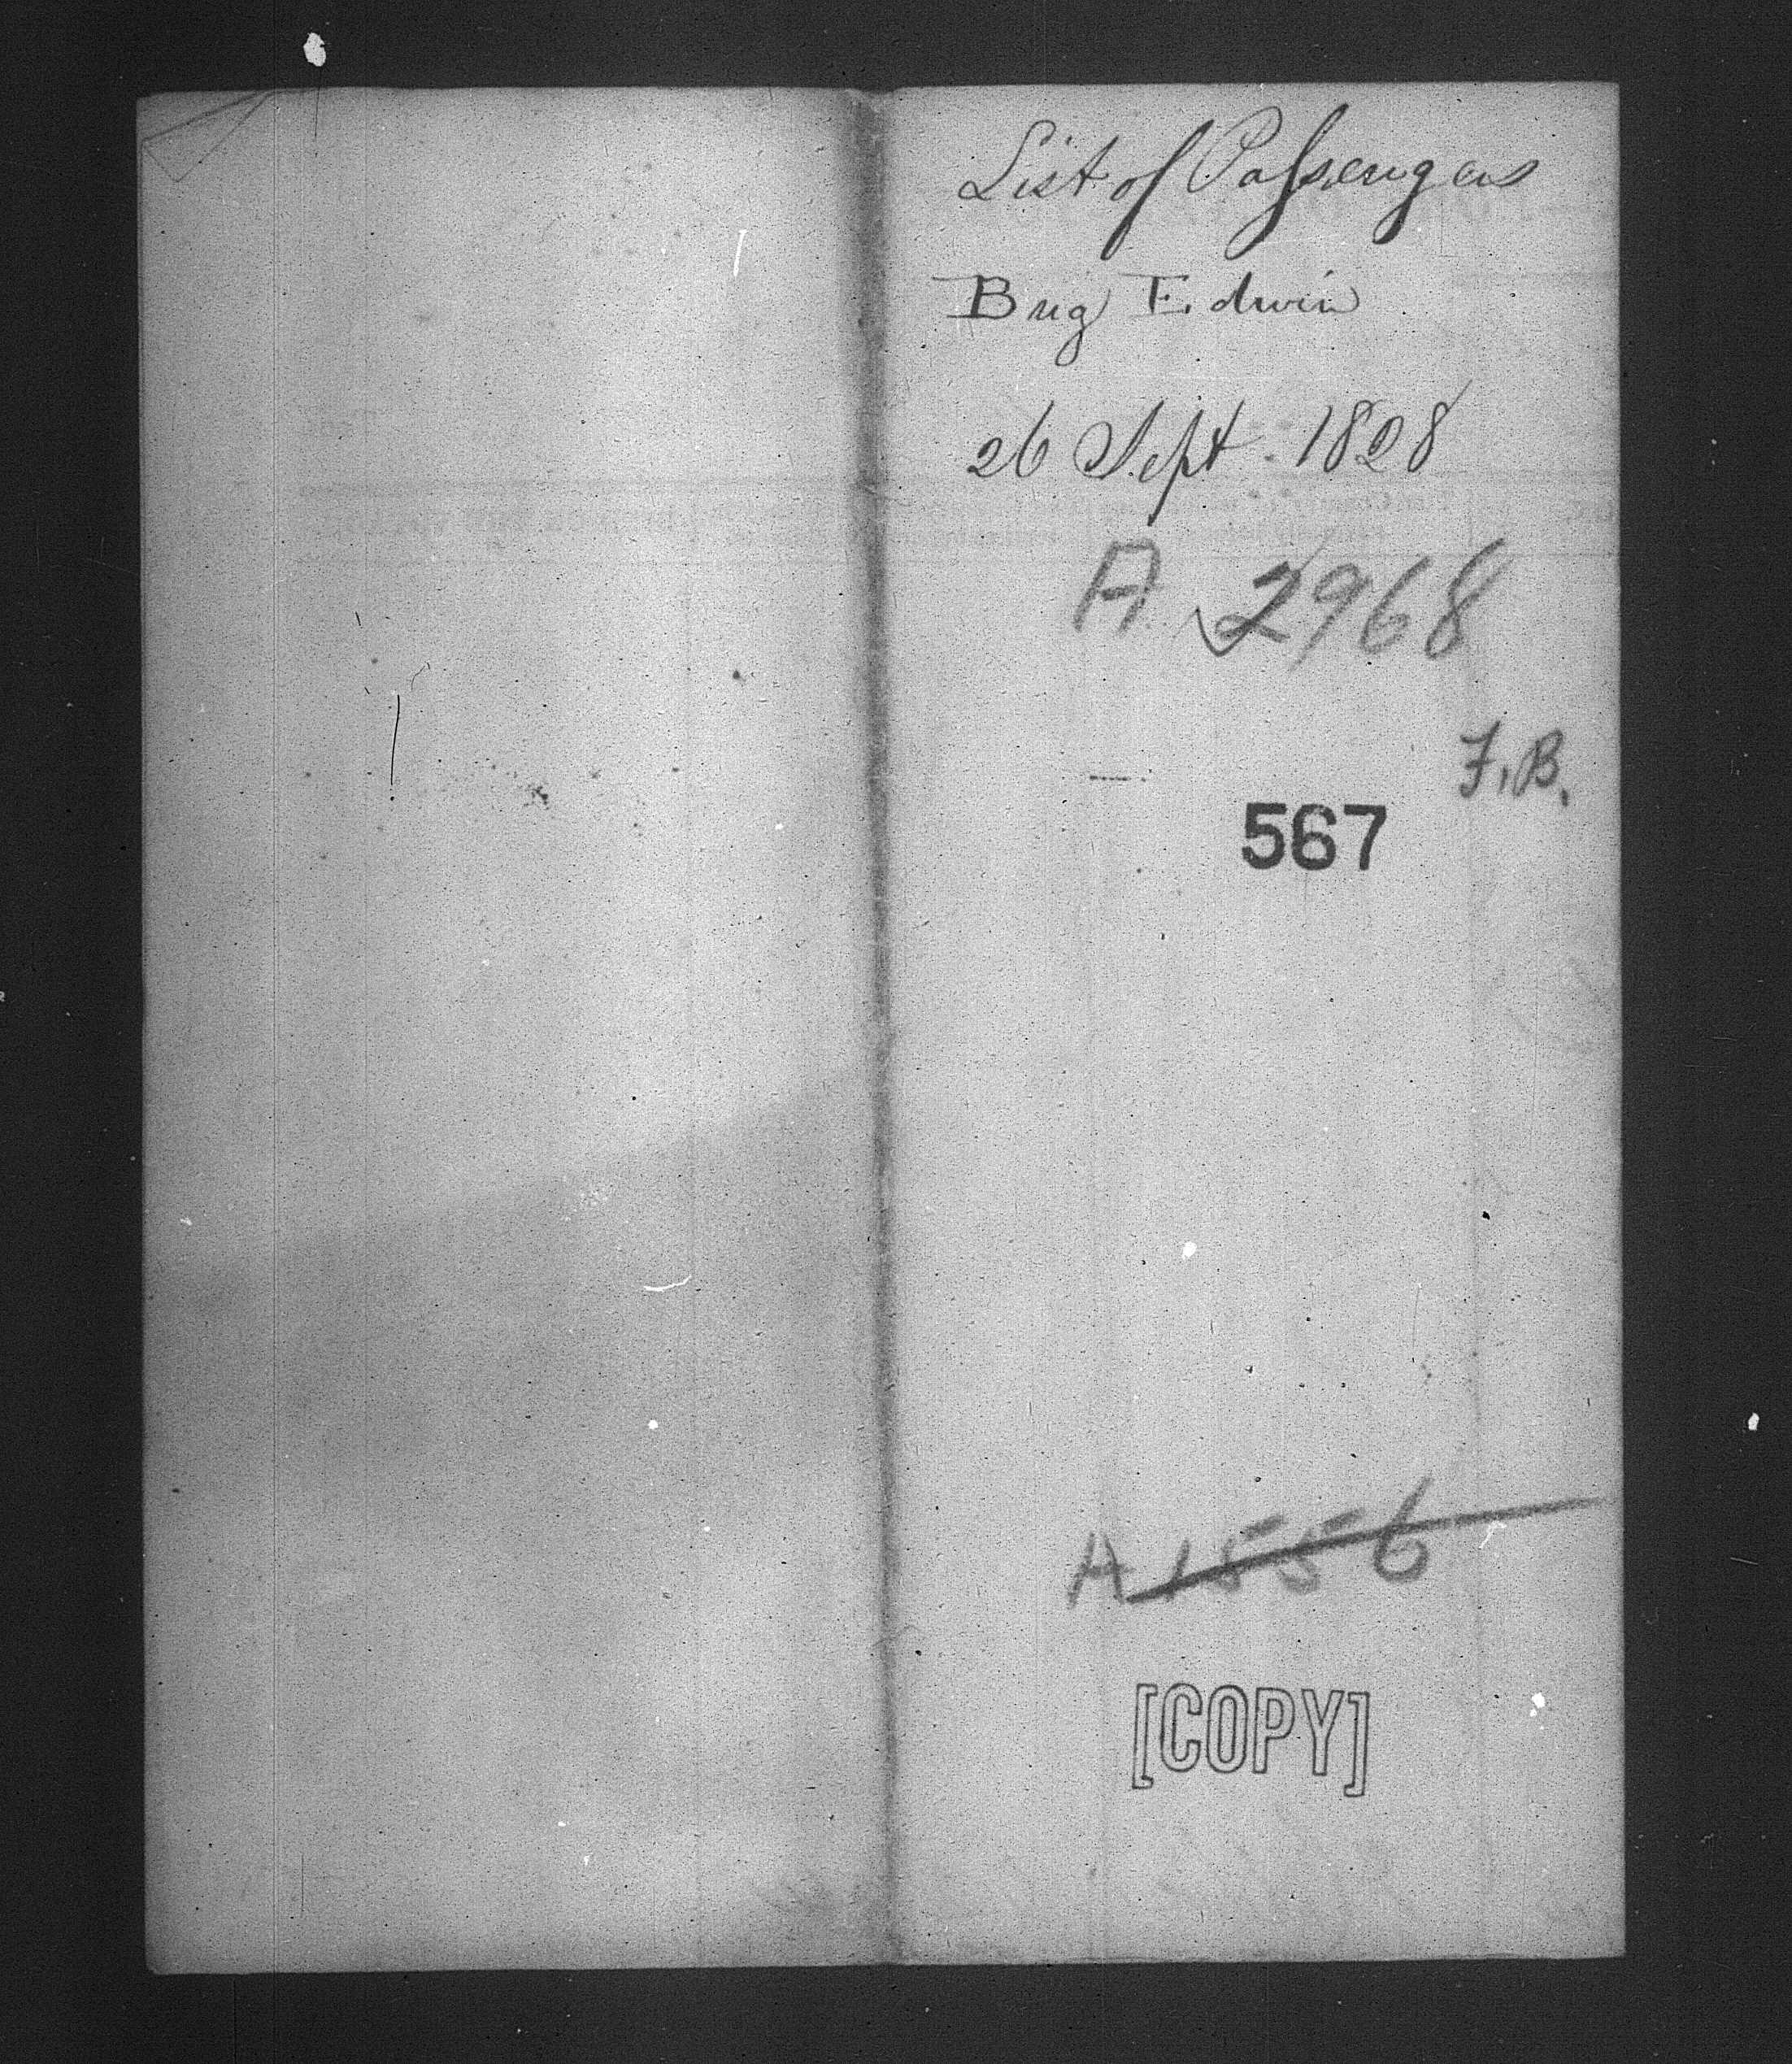 List of Passengers
Brig Edwin
26 Sept. 1828
A 2968
F.B.
567
A 1556
[COPY]